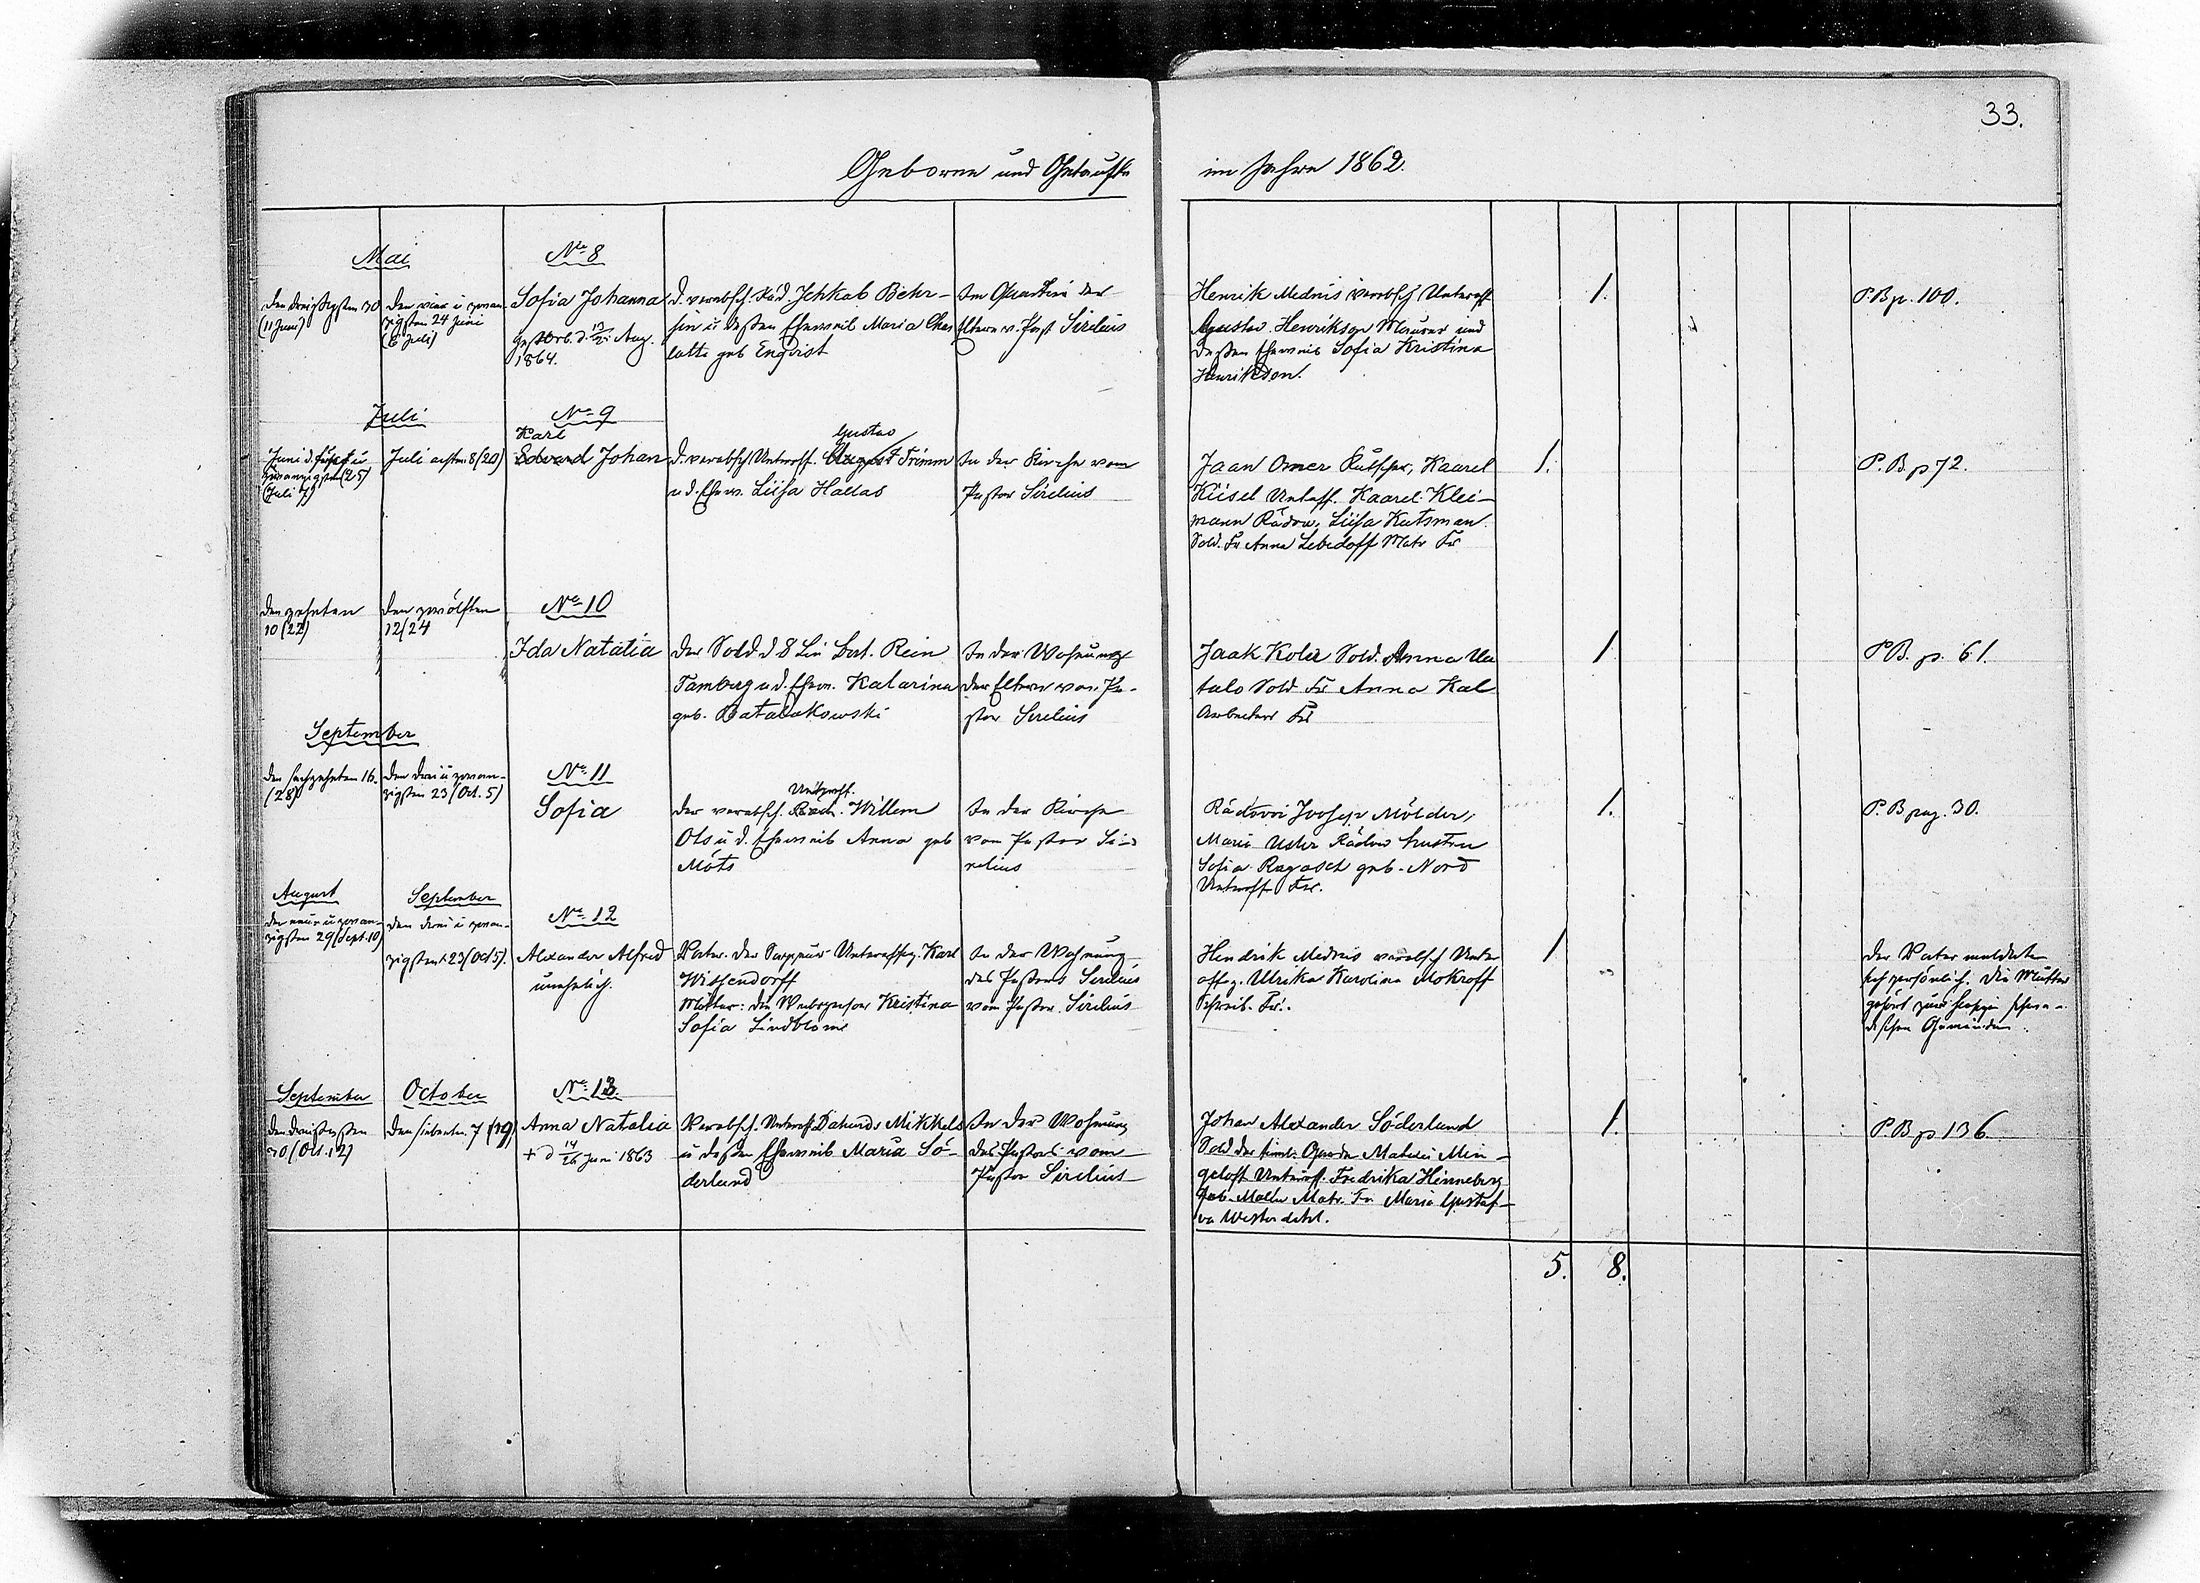 33.
Geborne und Getaufte im Jahre 1862.
Mai
No 8
den dreißigsten 30
(11 Juni)
den vier u zwan-
zigsten 24 Juni
(6 Juli)
Sofia Johanna
gestorb. d. Aug.
1864.
d. verabsch. Jehkab Behr-
sin u dessen Eheweib Maria Char
lotte geb Enqvist
Im Quartier der
Eltern v. Past Sirelius
Henrik Mednis verabsch Unteroff
Gustav Henrikson Maurer und
dessen Eheweib Sofia Kristina
Henrikson.
1.
P.B p. 100.
Juli
No 9
Juni d. fünf u
zwanzigsten (25)
(Juli 7)
Juli achten 8 (20)
Karl
Edvard Johan
Gustav
d. verabsch Unteroff. August Trimm
u d. Ehew. Liisa Hallas
In der Kirche vom
Pastor Sirelius
Jaan Omer Kutscher, Kaarel
Kiisel Unteoff. Kaarel Klei-
mann Liisa Kutsman
Sold. Fr Anna Lebedoff Matr Fr
1.
P. B p 72.
den zehnten
10 (22)
den zwölften
12/24
No 10
Ida Natalia
der Sold. d 8 Lin Bat. Rein
Tamberg u d. Ehew. Katarina
geb.
In der Wohnung
der Eltern vom Pa-
stor Sirelius
Jaak Koler Sold. Anna
talo Sold Fr Anna Kal
Arbeiters Fr
1
P B. p. 61.
September
den sechzehnten 16.
(28)
den drei u zwan-
zigsten 23 (Oct. 5)
No 11
Sofia
Unteroff.
der verabsch. Willem
Ots u d. Eheweib Anna geb
Mõts
In der Kirche
vom Pastor Si-
relius
Joosep Mölder,
Marie
Sofia Ragosch geb. Nord
Unteroff Fr.
1.
P. B pag. 30.
August
September
den neun u zwan-
zigsten 29 (Sept. 10)
den drei u zwan-
zigsten 23 (Oct 5).
No 12
Alexander Alfred
unehelich.
Vater. der Sappeur Unteroffiz. Karl
Witzendorff
Mutter: die Weibsperson Kristina
Sofia Lindblom
In der Wohnung
des Pastors Sirelius
vom Pastor Sirelius
Hendrik Mednis verabsch Unter
offz. Ulrika Karolina Mokroff
Schreib. Fr.
1
der Vater meldete
sich persönlich. Die Mutter
gehört zur hiesigen schwe-
dischen Gemeinde.
September
October
den dreißigsten
30 (Oct. 12)
den siebenten 7 (19)
No 13
Anna Natalia
+ d 14/26 Juni 1863
Verabsch. Unteroff. Mikkels
u dessen Eheweib Maria Sö-
derlund
In der Wohnung
des Pastors vom
Pastor Sirelius
Johan Alexander Söderlund
Sold der finnl. Garde Min-
geloff Unteroff. Fredrika Hinneberg
geb. Matr. Fr Maria Gustaf-
va
1.
P. B p 136.
5. 8.